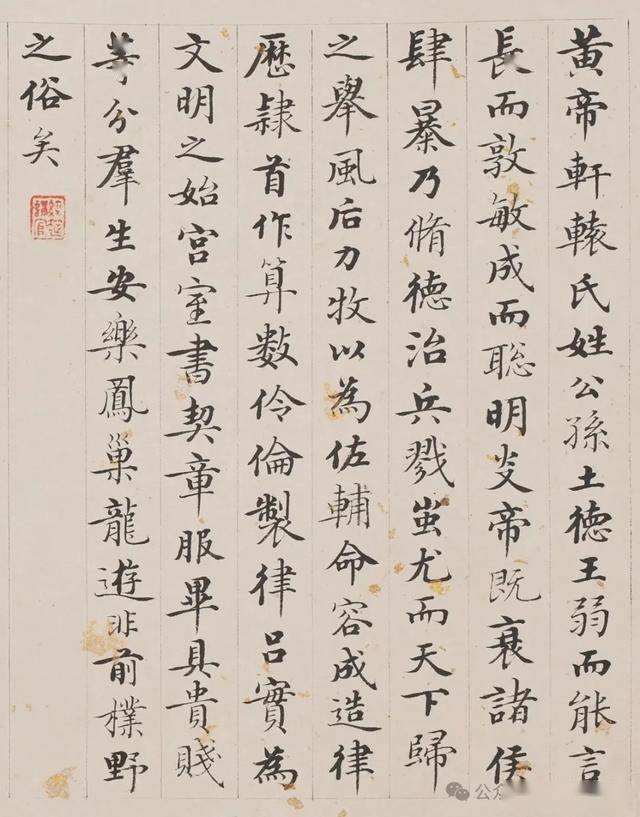 黃帝軒轅氏姓公孫土德王弱而能言
長而敦敏成而聰明炎帝既衰諸侯
肆暴乃脩德治兵戮蚩尤而天下歸
之舉風后力牧以為佐輔命容成造律
厯隸首作算數伶倫製律呂實為
文明之始宮室書契章服畢具貴賤
等分羣生安樂鳳巢龍遊非前樸野
之俗矣
公